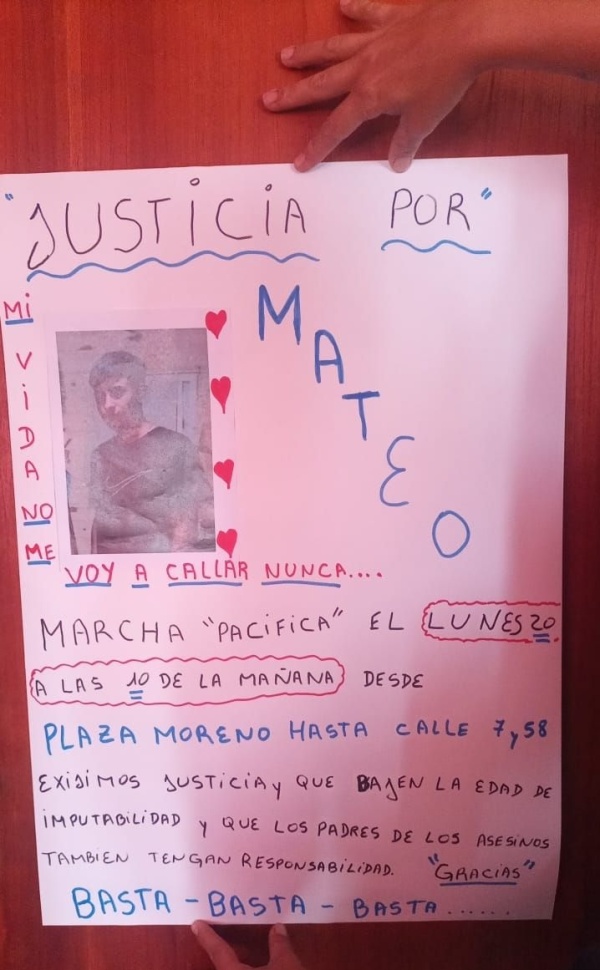 "JUSTICIA POR"
MATEO
MI VIDA NO ME
VOY A CALLAR NUNCA....
MARCHA "PACIFICA" EL LUNES 20
A LAS 10 DE LA MAÑANA DESDE
PLAZA MORENO HASTA CALLE 7 y 58
EXIJIMOS JUSTICIA y QUE BAJEN LA EDAD DE
IMPUTABILIDAD y QUE LOS PADRES DE LOS ASESINOS
TAMBIEN TENGAN RESPONSABILIDAD. "GRACIAS"
BASTA - BASTA - BASTA......